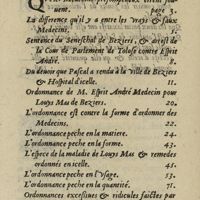 uent. page 3.
La difference qu'il y a entre les vrays & faux
Medecins. 1.
Sentence du Seneschal de Beziers, & arrest de
la Cour de Parlement de Tolose contre Esprit
André. 8.
Du deuoir que Pascal a rendu à la Ville de Beziers
& Hospital d'icelle. 11.
Ordonnance de M. Esprit André Medecin pour
Louys Mas de Beziers. 20.
L'ordonnance est contre la forme d'ordonner des
Medecins. 22.
L'ordonnance peche en la matiere. 24.
L'ordonnance peche en la forme. 43.
L'espece de la maladie de Louys Mas & remedes
ordonnés en icelle. 41.
L'ordonnance peche en l'Vsage. 53.
L'ordonnance peche en la quantité. 71.
Ordonnances excessiues & ridicules faictes par